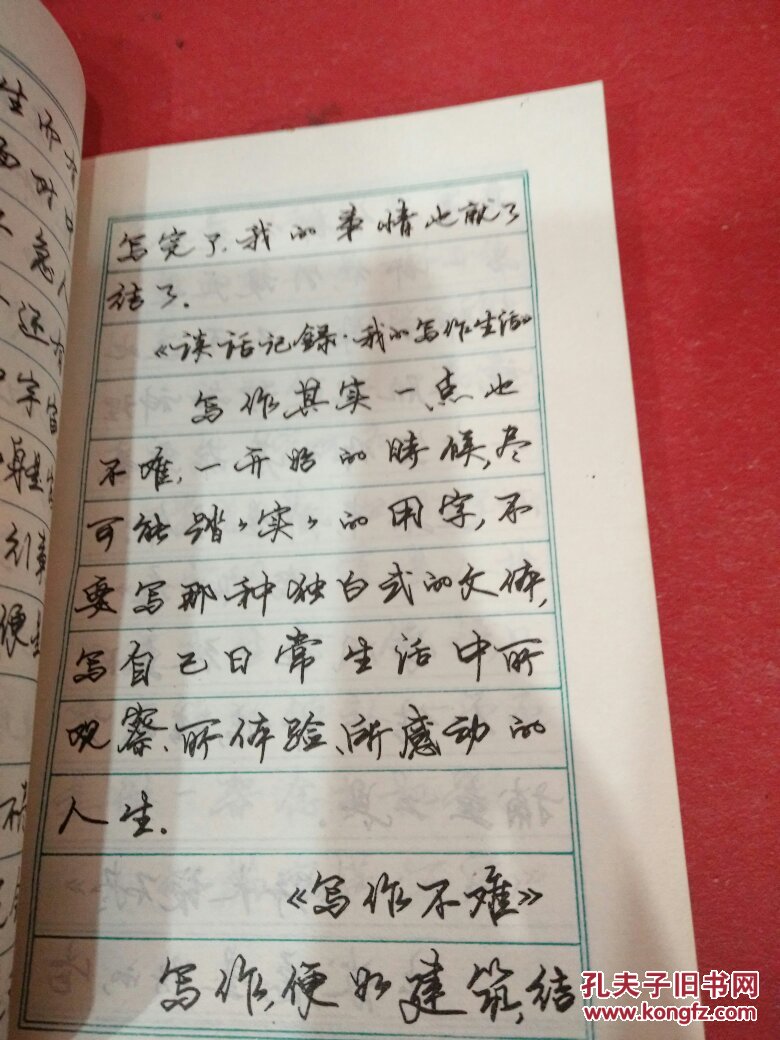 写完了.我的事情也就了
结了.
《谈话记録·我的写作生活》
写作其实一点也
不难,一开始的時候,尽
可能踏“实”的用字,不
要写那种独白式的文体,
写自己日常生活中所
观察、所体验、所感动的
人生.
《写作不难》
写作,便如建筑,结
生而
面对
急
还
字
事
便
孔夫子旧书网
www.kongfz.com